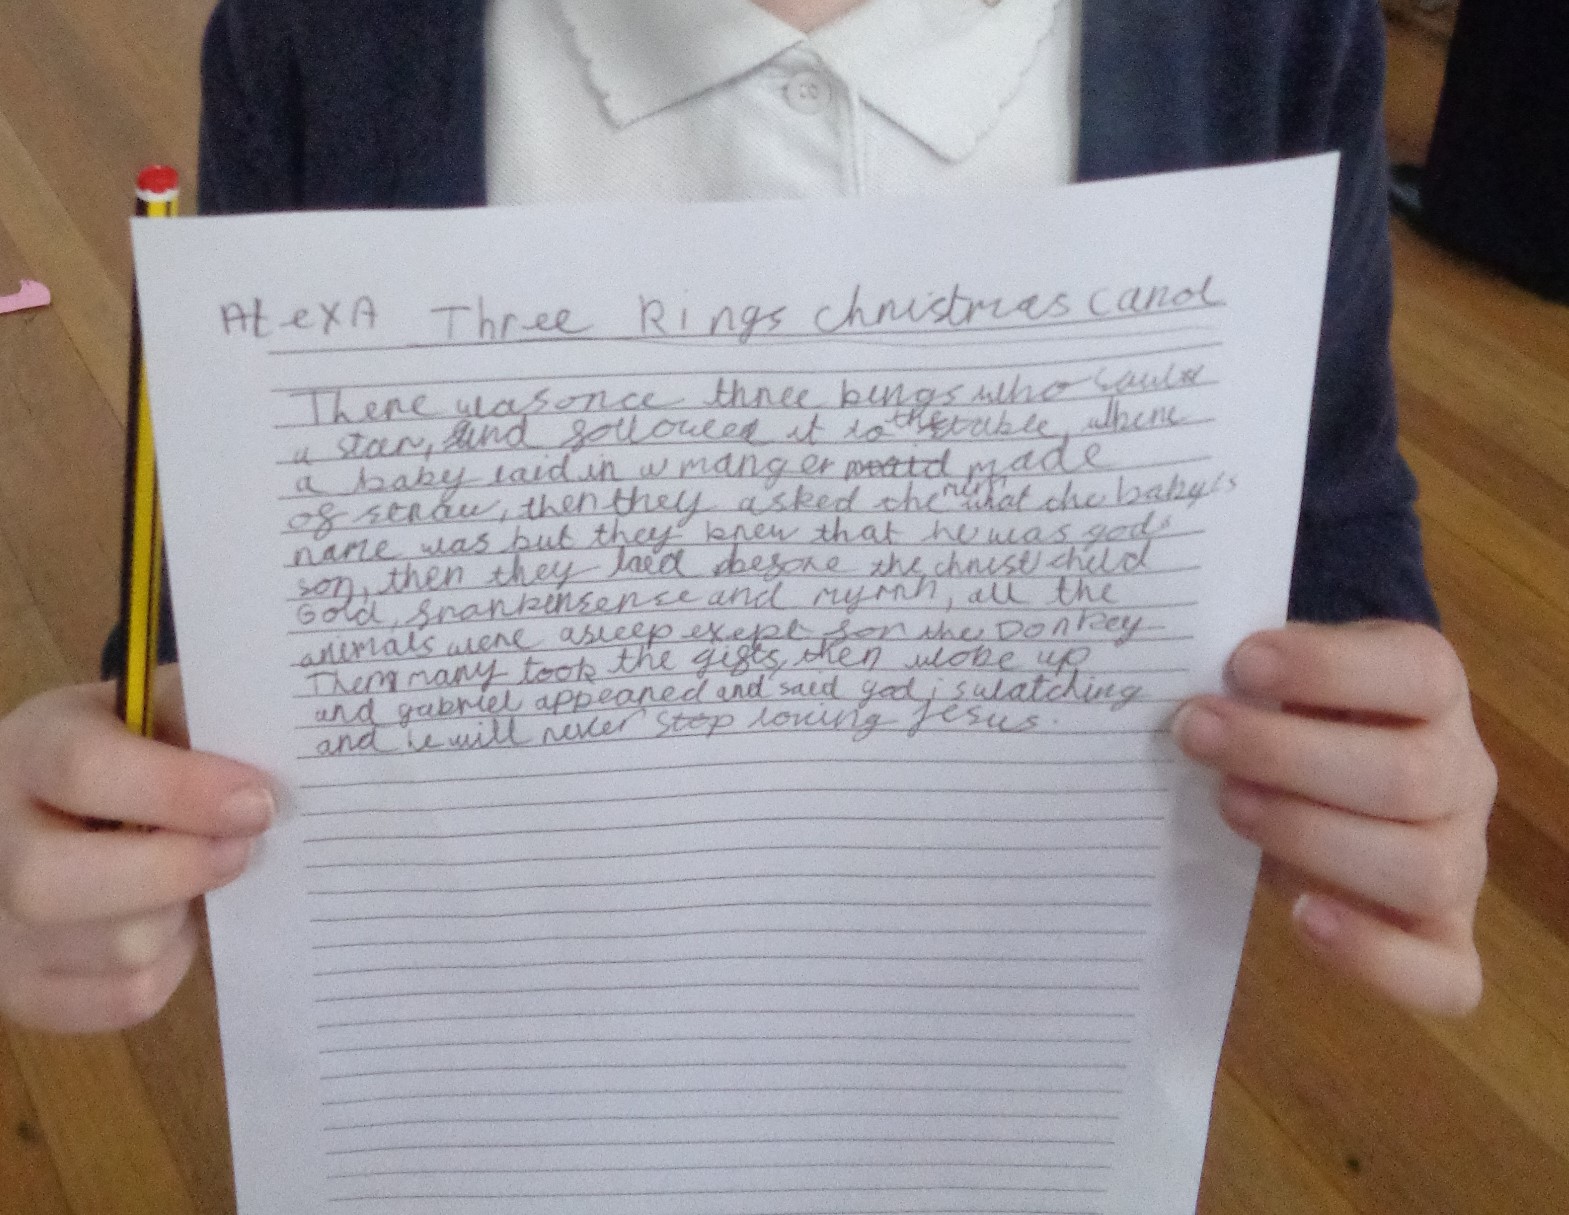 AlexA Three Kings christmas carol
There was once three kings who saw
a star, and followed it to the stable, where
a baby laid in a manger made
of straw, then they asked the what the baby's
name was but they knew that he was gods
son, then they laed before the christ child
Gold, frankinsense and myrrh, all the
animals were asleep exept for the Donkey
Then many took the gifts, then woke up
and gabriel appeared and said god is watching
and will never stop loving Jesus.